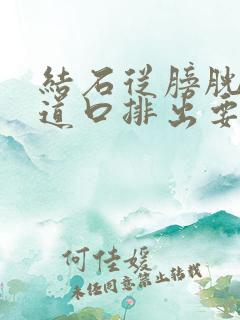 結石從膀胱
道口排出要
何佳媛
未經同意禁止轉載